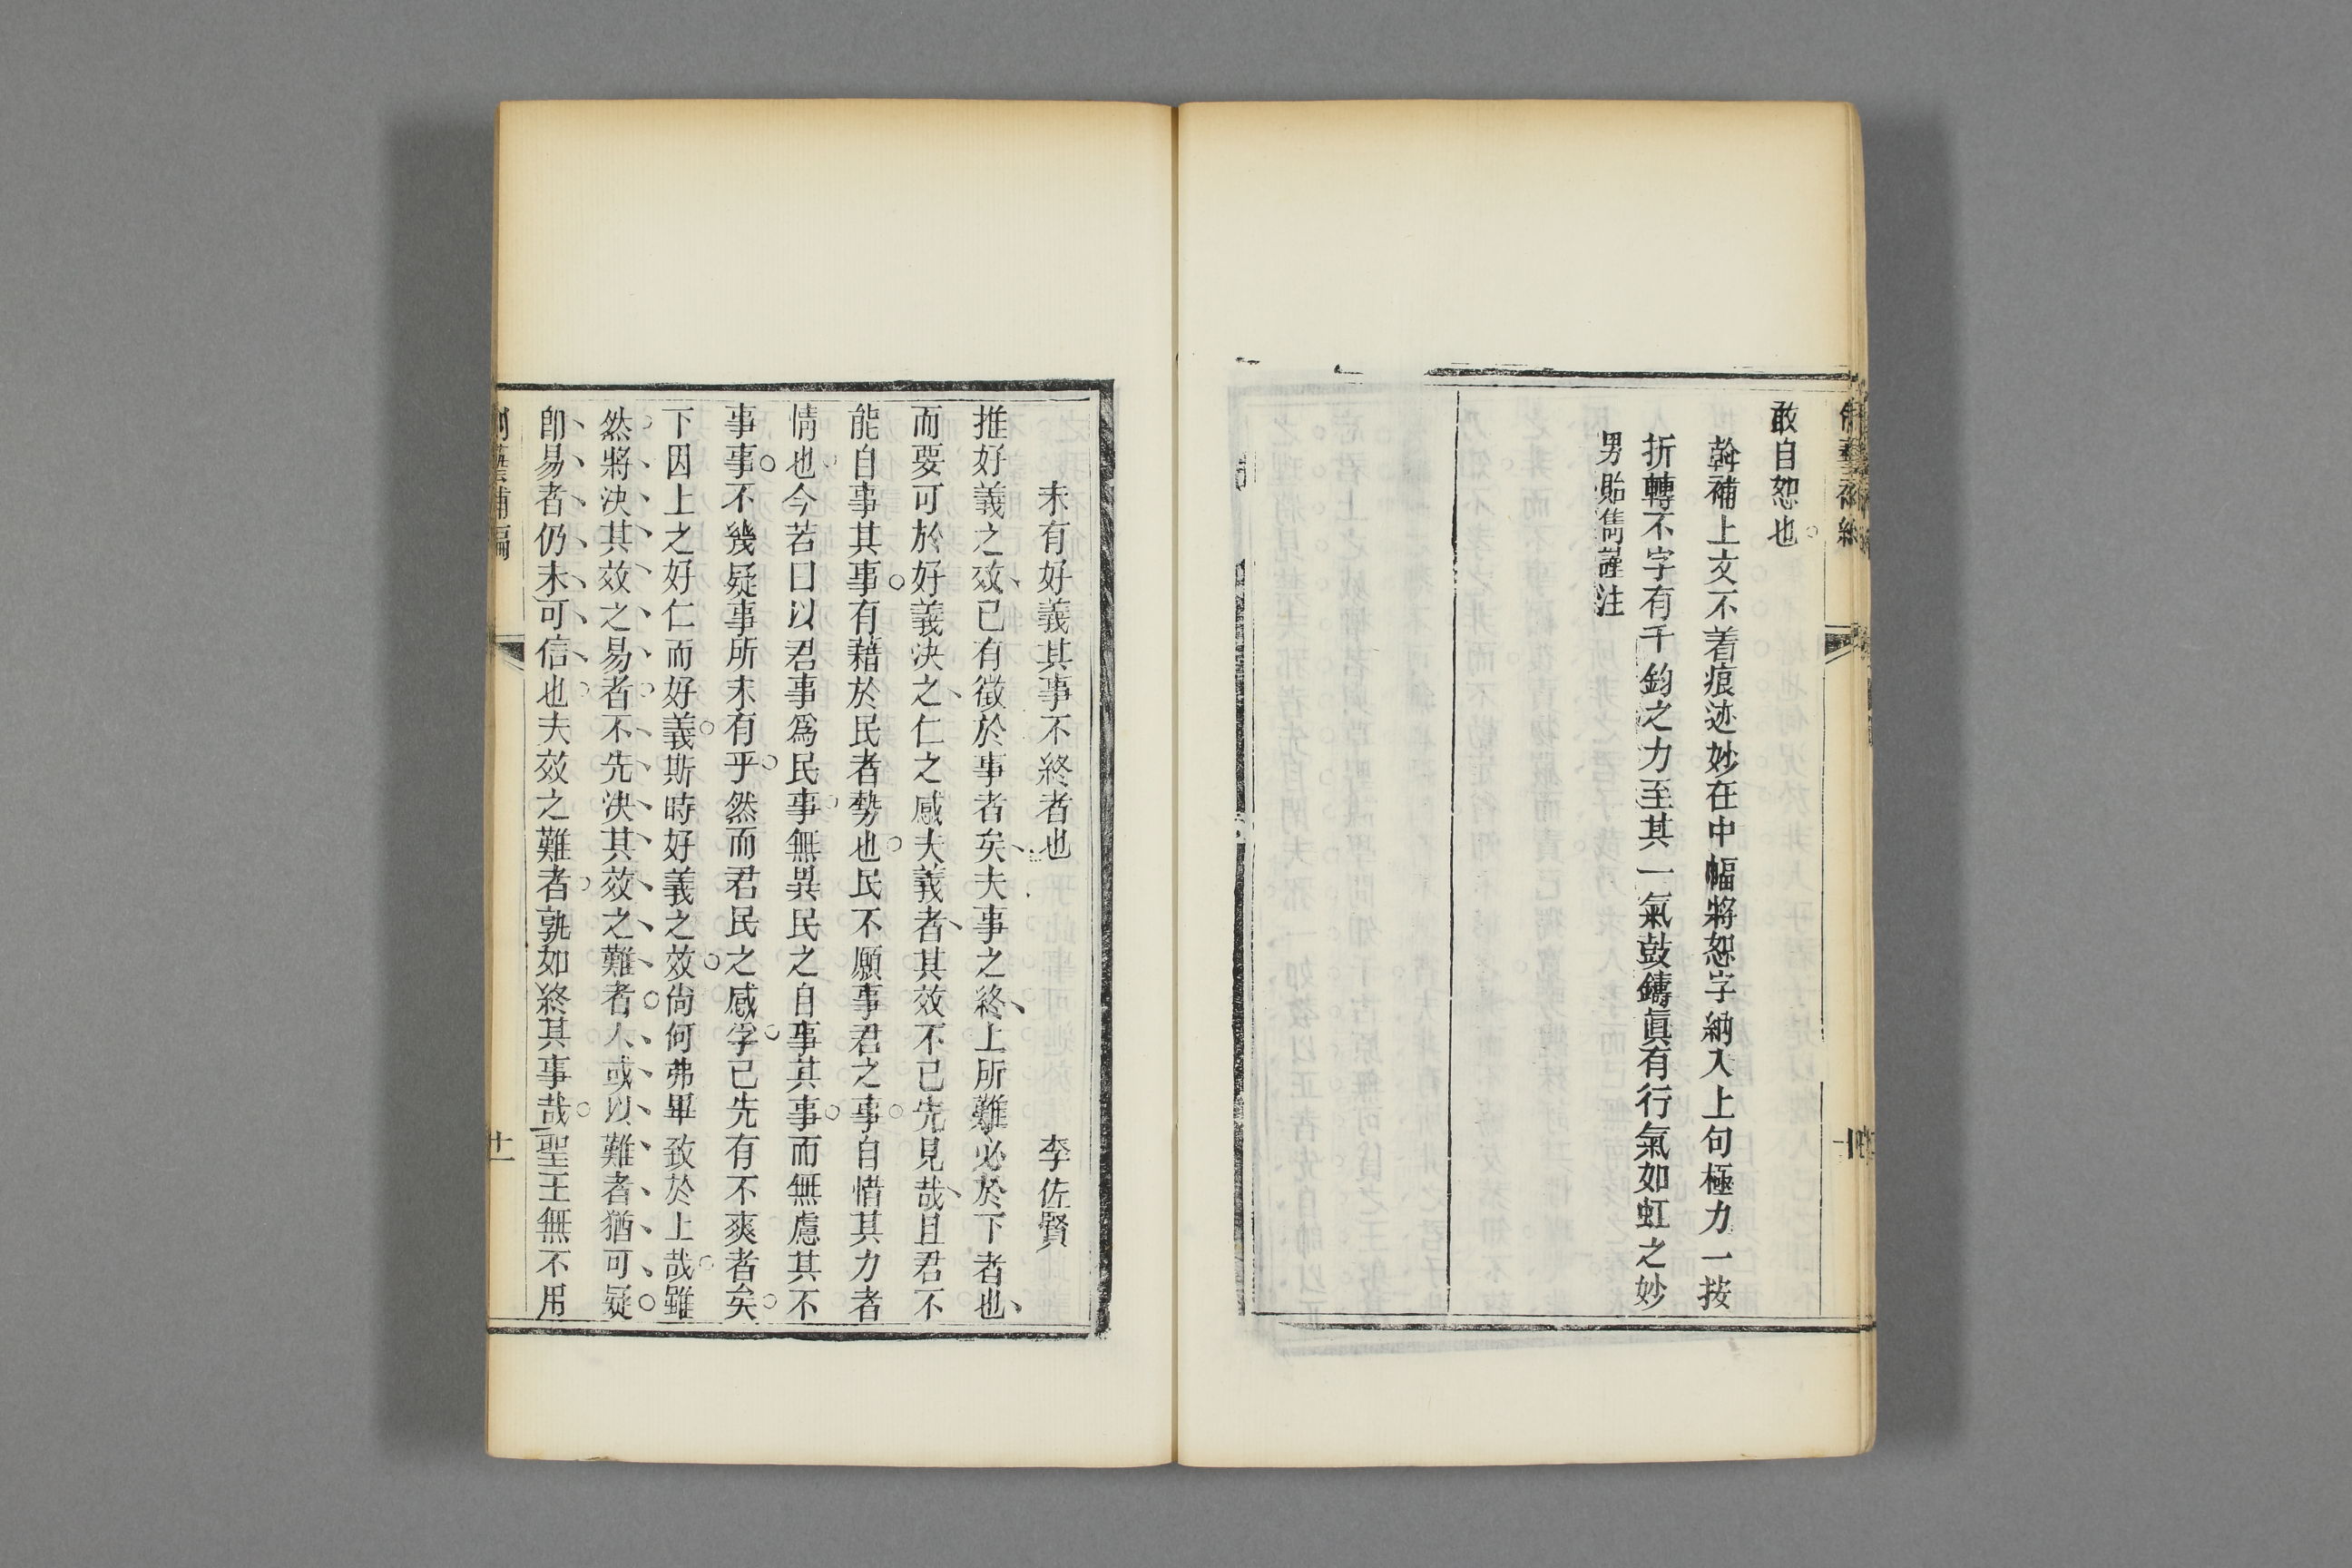 敢自恕也
斡補上文不着痕迹妙在中幅將恕字納入上句極力一按
折轉不字有千鈞之力至其一氣鼓鑄眞有行氣如虹之妙
男貽雋謹注
未有好義其事不終者也　李佐賢
推好義之效已有徵於事者矣夫事之終上所難必於下者也
而要可於好義決之仁之感夫義者其效不已先見哉且君不
能自事其事有藉於民者勢也民不願事君之事自惜其力者
情也今若曰以君事爲民事無異民之自事其事而無慮其不
事事不幾疑事所未有乎然而君民之感孚已先有不爽者矣
下因上之好仁而好義斯時好義之效尙何弗畢致於上哉雖
然將決其效之易者不先決其效之難者人或以難者猶可疑
卽易者仍未可信也夫效之難者孰如終其事哉聖王無不用
制藝補編
廿一